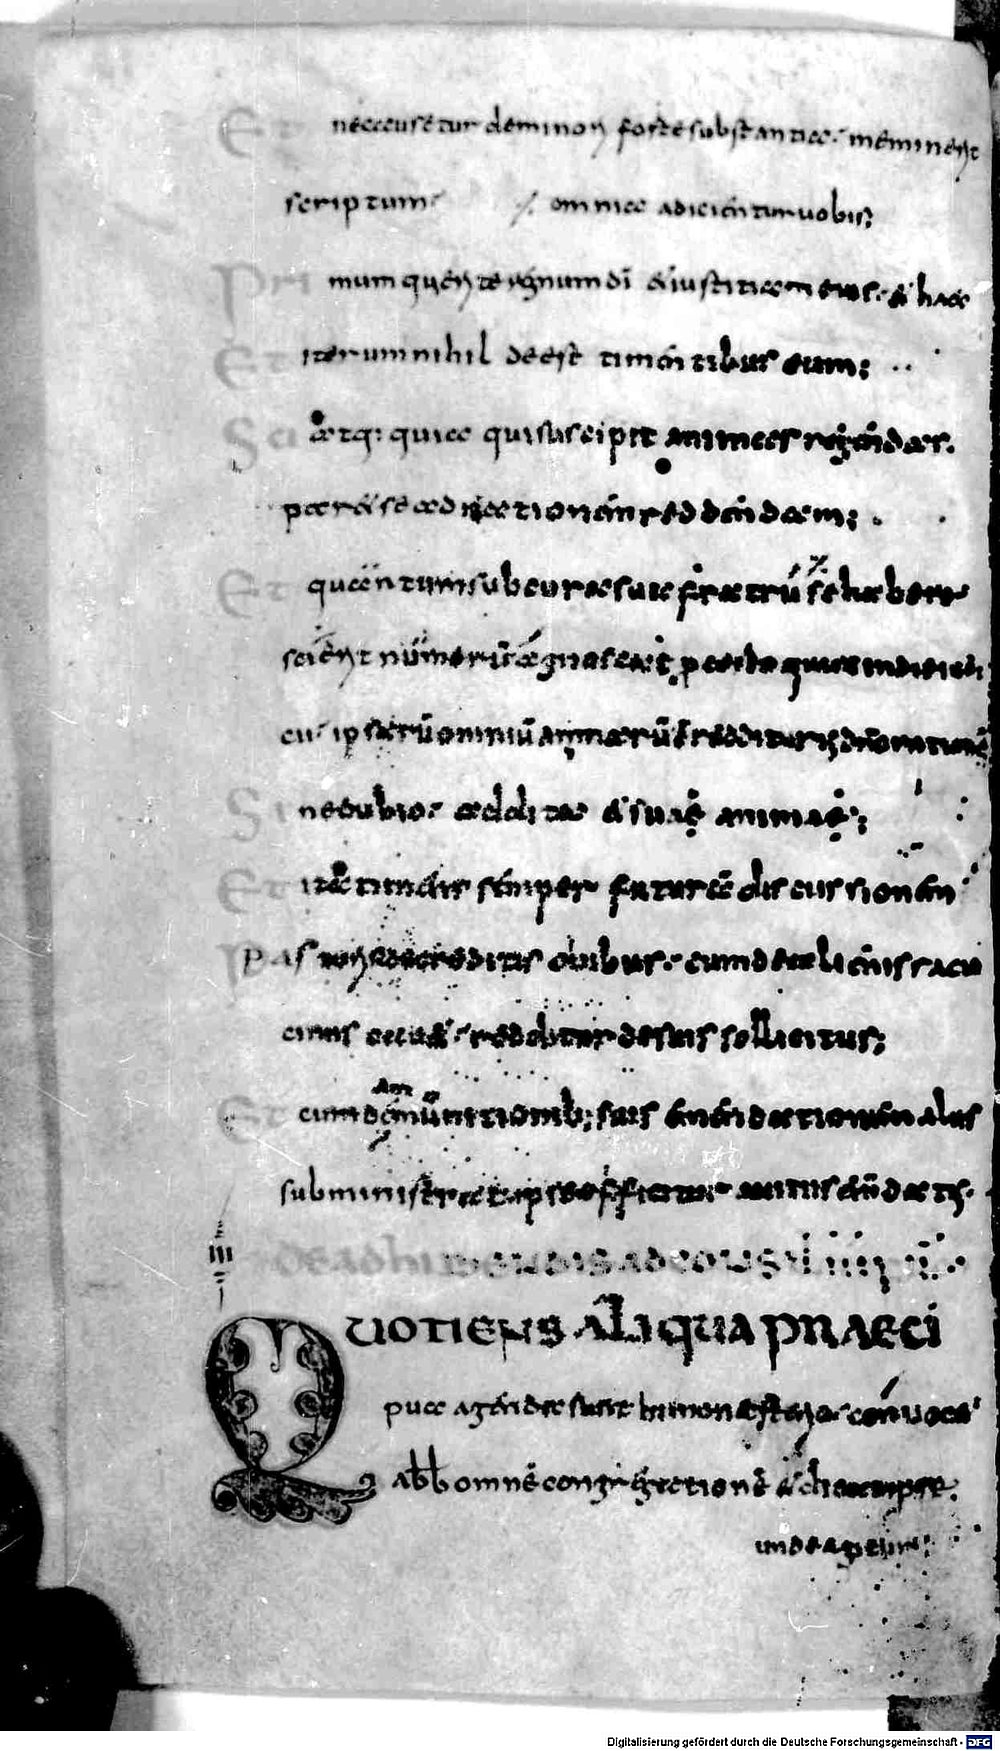 Et ne causetur deminori forte substantia· meminerit
scriptum· omnia adicientur uobis;
Primum querite regnum dī & iustitiam eius· & haec
Et iterum nihil deest timentibus eum;
Sciatq: quia qui suscipit animas regendas·
par& se ad rationem reddendam;
Et quantum sub cura sua fratrū se habere
scierit numerū agnoscat p certo quia in die iudi
cii ipsarū omniū animarū ē redditurus dn̄o rationē
Sine dubio· addita & suae animae;
Et ita timens semper futurā discussionem
Pastoris de creditis ouibus· cum de alienis racio
cinis cau&· redditur de suis sollicitus;
Et cum de āmūnitionib; suis emendationem aliis
subministrat· ipse efficitur a uitiis emendatus·
III de adhibendis ad consiliū
QUOTIENS ALIQUA PRAECI
pua agenda sunt in monasterio· conuoc&
abb omnē congregationē & dicat ipse·
unde agitur;
Digitalisierung gefördert durch die Deutsche Forschungsgemeinschaft - DFG